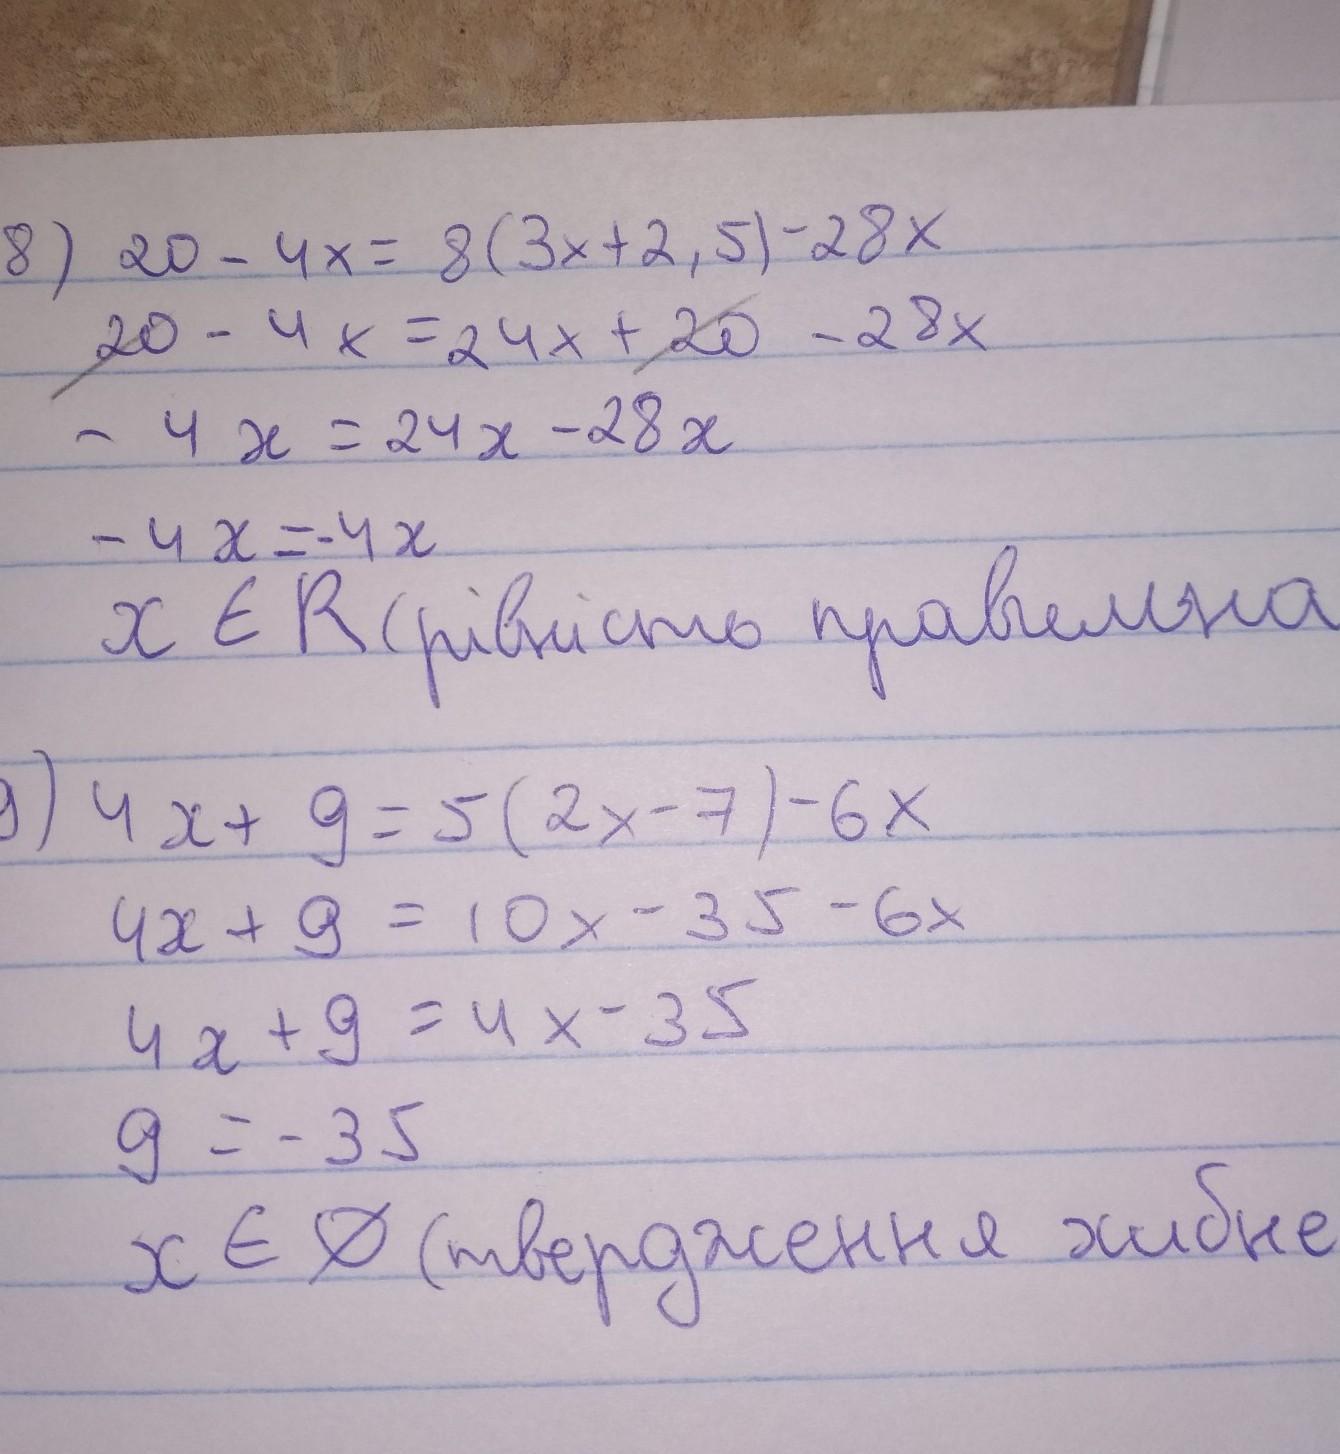 8) 20 - 4x = 8(3x+2,5) - 28x
20 - 4x = 24x + 20 - 28x
- 4x = 24x - 28x
- 4x = -4x
x ∈ R (рівність правильна
9) 4x + 9 = 5(2x - 7) - 6x
4x + 9 = 10x - 35 - 6x
4x + 9 = 4x - 35
9 = -35
x ∈ ∅ (твердження хибне